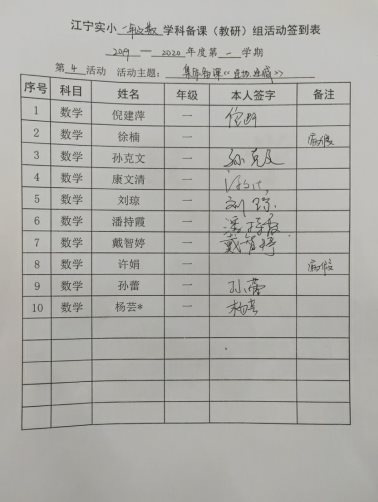 江宁实小 一年级数 学科备课（教研）组活动签到表
2019 — 2020 年度第 一 学期
第 4 活动 活动主题：集体备课
序号 科目 姓名 年级 本人签字 备注
1 数学 倪建萍 一
2 数学 徐楠 一 病假
3 数学 孙克文 一 孙克文
4 数学 康文清 一
5 数学 刘琼 一 刘琼
6 数学 潘持霞 一 潘持霞
7 数学 戴智婷 一 戴智婷
8 数学 许娟 一 病假
9 数学 孙蕾 一 孙蕾
10 数学 杨芸* 一 杨芸